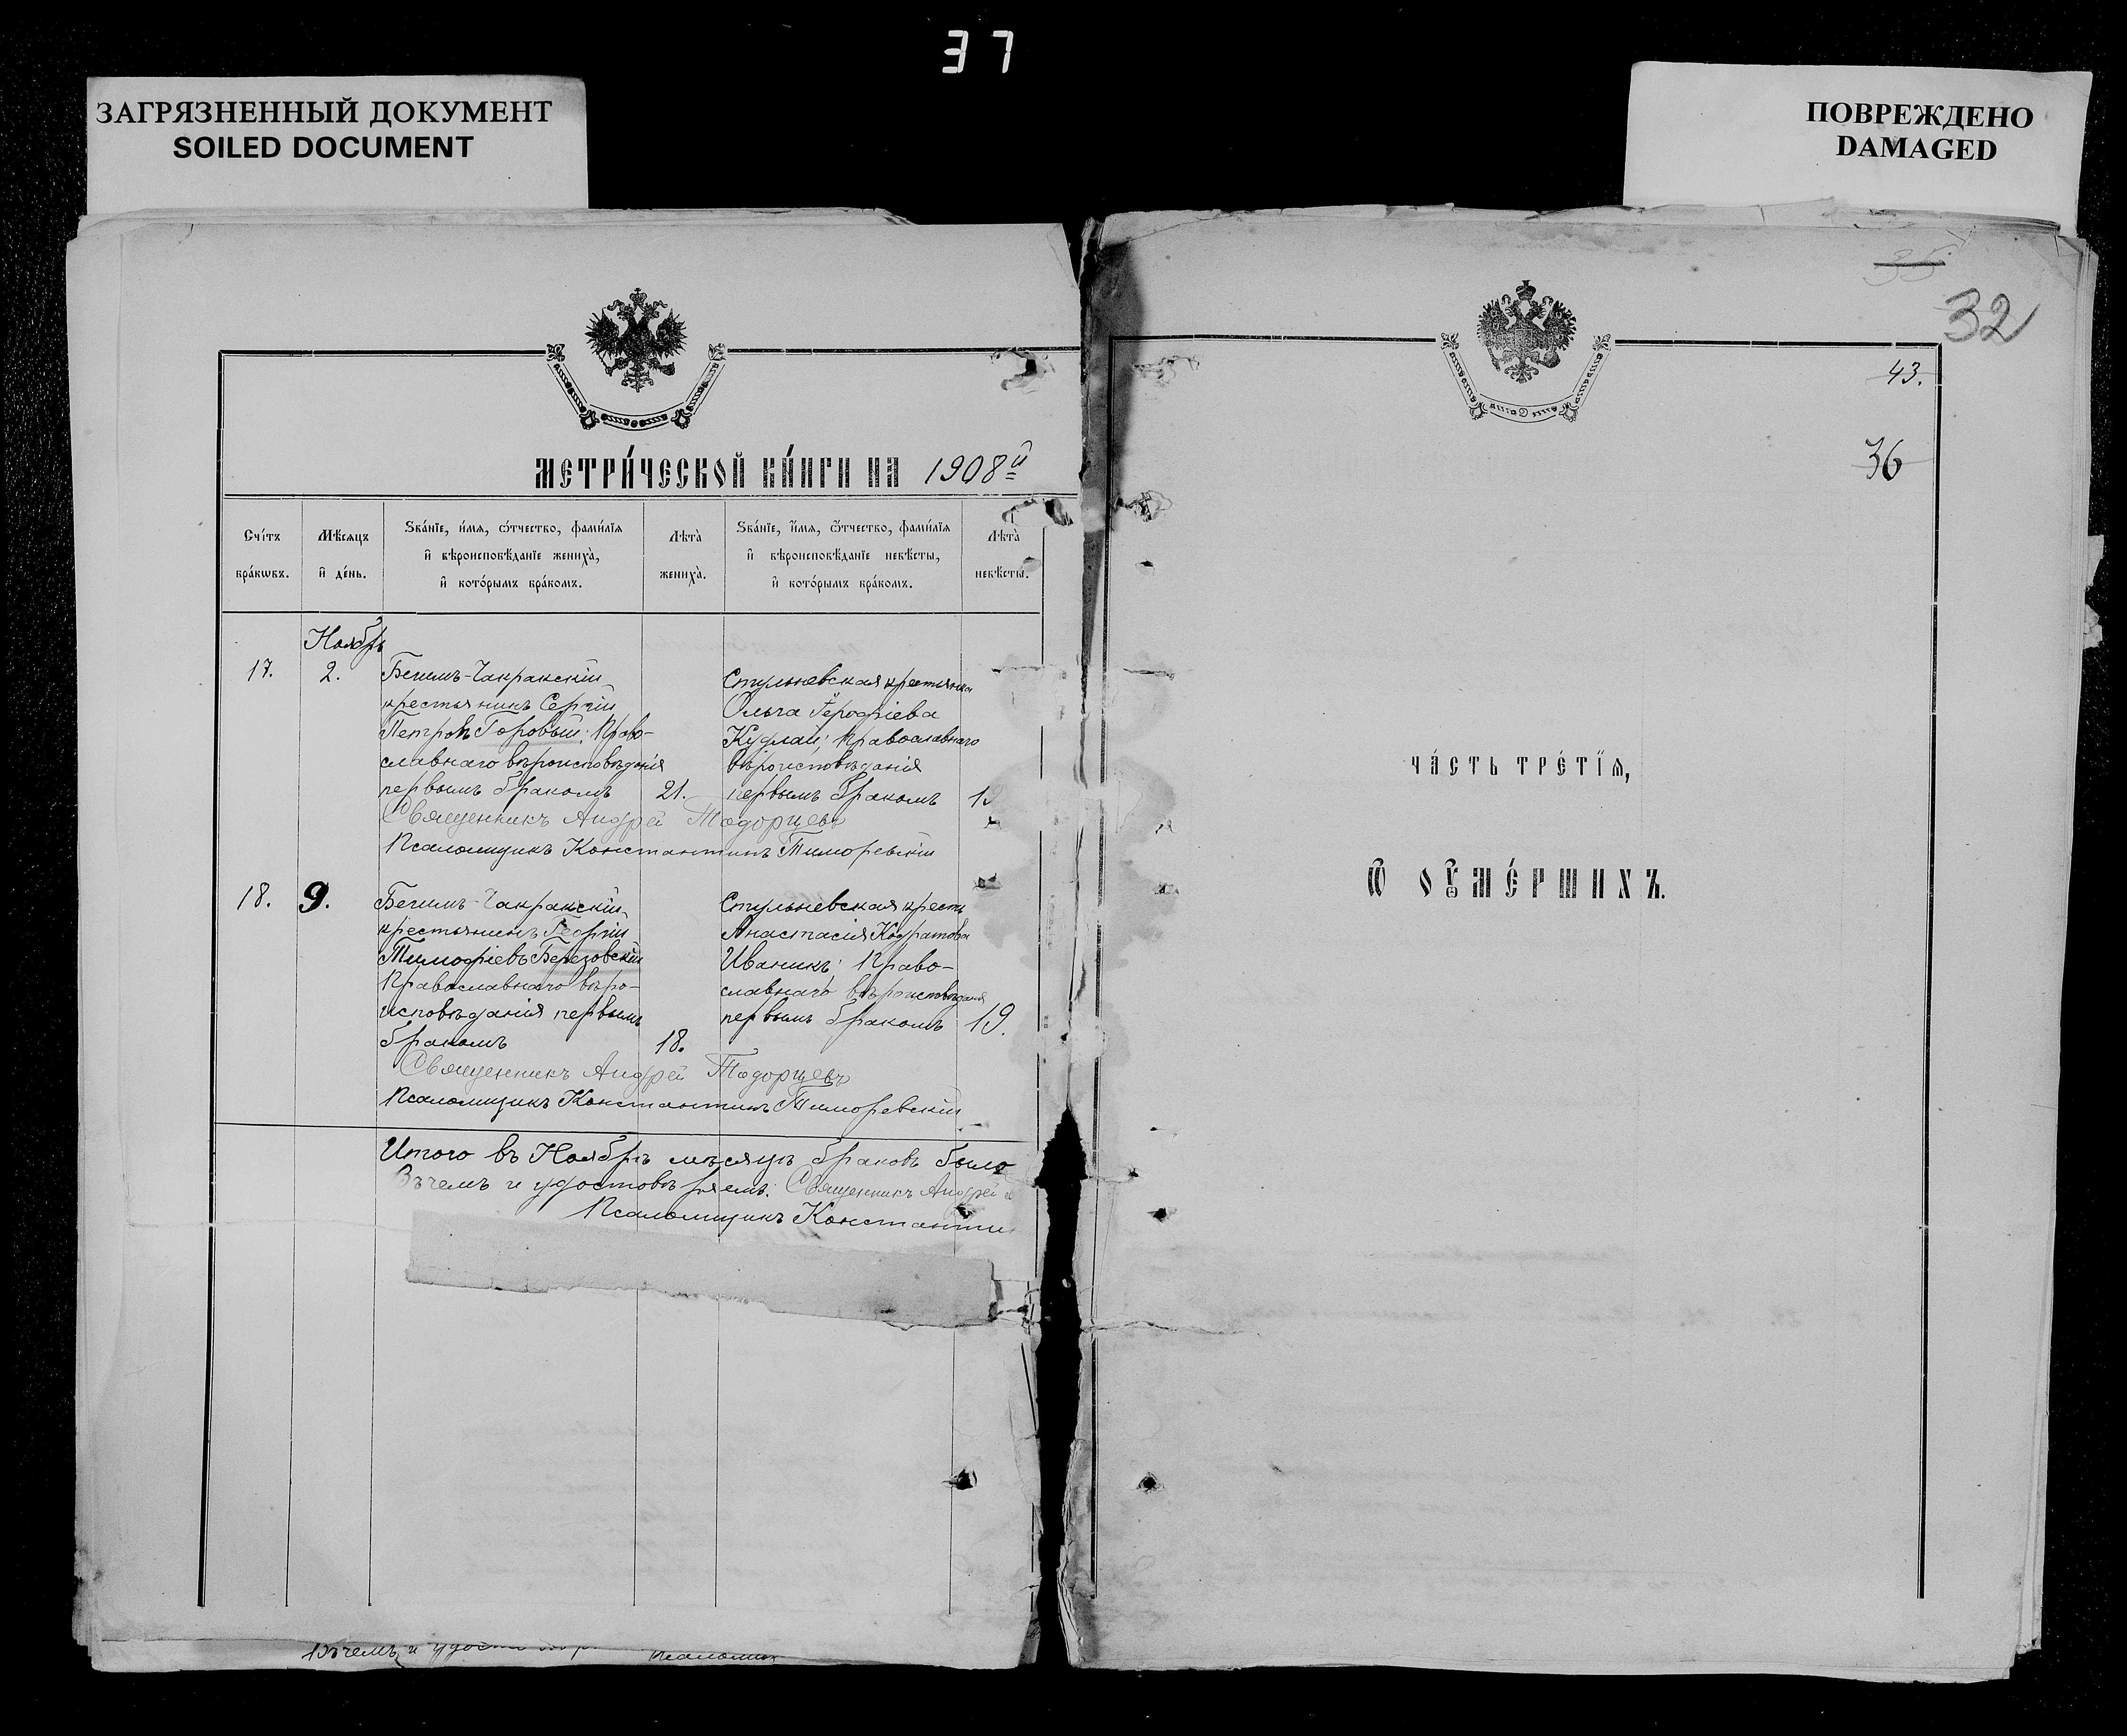 37
ЗАГРЯЗНЕННЫЙ ДОКУМЕНТ
SOILED DOCUMENT
ПОВРЕЖДЕНО
DAMAGED
МЕТРИ́ЧЕСКОЙ КНИ́ГИ НА 1908й
Сче́тъ бра́кѡвъ.
Мѣ́сяцъ и҆ де́нь.
Ѕва́нїе, и҆́мѧ, ѻ҆́тчество, фами́лїѧ
и҆ вѣроисповѣ́данїе жениха̀,
и҆ кото́рымъ бра́комъ.
Лѣта̀ жениха̀.
Ѕва́нїе, и҆́мѧ, ѻ҆́тчество, фами́лїѧ
и҆ вѣроисповѣ́данїе невѣ́сты,
и҆ кото́рымъ бра́комъ.
Лѣта̀ невѣ́сты.
Ноябрь
17. 2.
Бегимъ-Чакракскій
крестьянинъ Сергій
Петровъ Горовый; Право-
славнаго вѣроисповѣданія
первымъ бракомъ 21.
Стульневская крестьянка
Ольга
Кудлай; Православнаго
вѣроисповѣданія
первымъ бракомъ
Священникъ Андрей
Псаломщикъ Константинъ
18. 9.
Бегимъ-Чакракскій
крестьянинъ Георгій
Тимофіевъ Березовскій
Православнаго вѣро-
исповѣданія первымъ
бракомъ 18.
Стульневская кресть
Анастасія
Иваникъ; Право-
славнаго вѣроисповѣданія
первымъ бракомъ 19.
Священникъ Андрей
Псаломщикъ Константинъ
Итого въ Ноябрѣ мѣсяцѣ браковъ было
Въ чемъ и удостовѣряемъ: Священникъ Андрей
Псаломщикъ Константи
Въ чемъ и
35
32
43.
36
ЧА́СТЬ ТРЕ́ТЇѦ,
Ѽ ОУ҆МЕ́РШИХЪ.